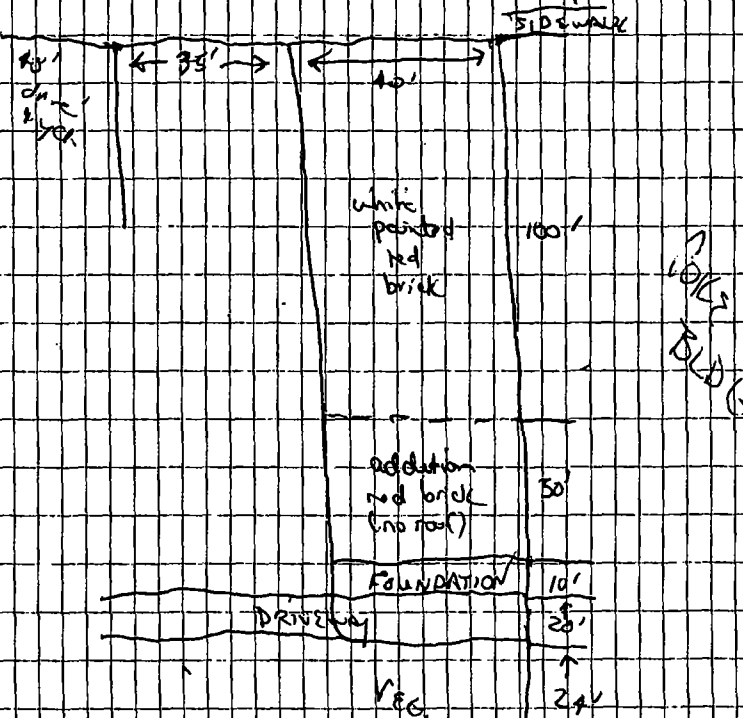 SIDEWALK
35'
40'
white
painted
red
brick
100'
BLD
addition
red brick
(no roof)
30'
FOUNDATION
10'
DRIVEWAY
20'
VEG.
24'